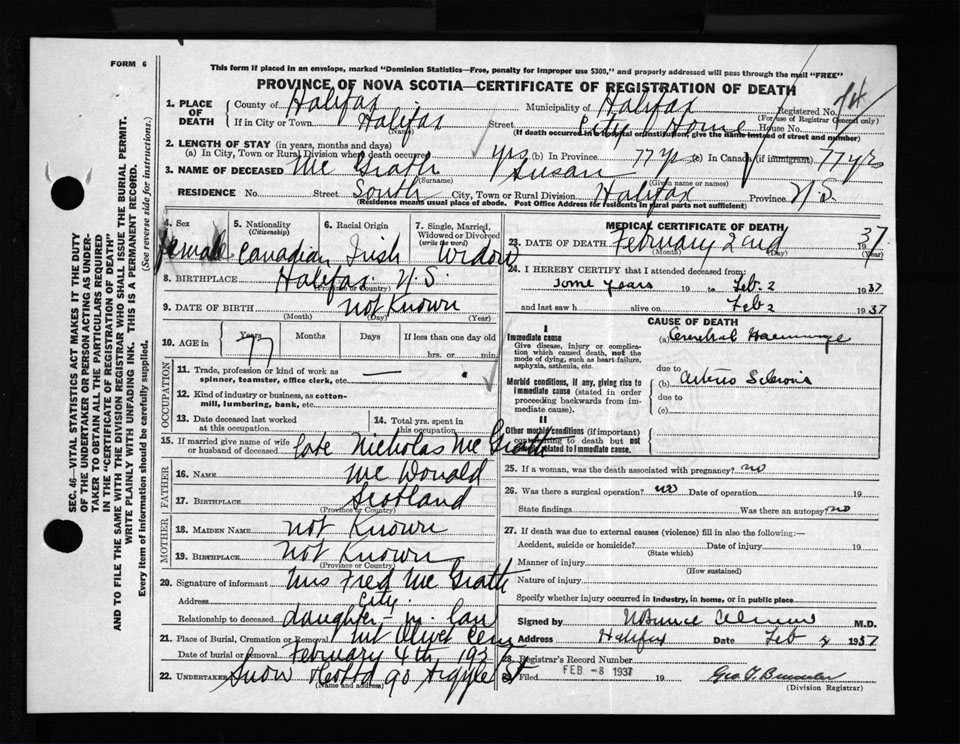 FORM 6
This form if placed in an envelope, marked "Dominion Statistics—Free, penalty for improper use $300," and properly addressed will pass through the mail "FREE"
PROVINCE OF NOVA SCOTIA—CERTIFICATE OF REGISTRATION OF DEATH
1. PLACE OF DEATH County of Halifax Municipality of Halifax Registered No.
(For use of Registrar General only)
If in City or Town Halifax Street City Home House No.
(Name) (If death occurred in hospital or institution, give the name instead of street and number)
2. LENGTH OF STAY (in years, months and days)
(a) In City, Town or Rural Division where death occurred yrs (b) In Province 77 yrs (c) In Canada (if immigrant) 77 yrs
3. NAME OF DECEASED Mc Grath Susan
(Surname) (Given name or names)
RESIDENCE No. Street South City, Town or Rural Division Halifax Province N.S.
(Residence means usual place of abode. Post Office Address for residents in rural parts not sufficient)
4. Sex 5. Nationality (Citizenship) 6. Racial Origin 7. Single, Married, Widowed or Divorced (write the word)
female Canadian Irish Widow
8. BIRTHPLACE Halifax N.S.
(Province or Country)
9. DATE OF BIRTH not Known
(Month) (Day) (Year)
10. AGE in Years Months Days If less than one day old
77 hrs. or min.
OCCUPATION
11. Trade, profession or kind of work as spinner, teamster, office clerk, etc.
12. Kind of industry or business, as cotton-mill, lumbering, bank, etc.
13. Date deceased last worked at this occupation 14. Total yrs. spent in this occupation
15. If married give name of wife or husband of deceased late Nicholas Mc Grath
FATHER
16. NAME Mc Donald
17. BIRTHPLACE Scotland
(Province or Country)
MOTHER
18. MAIDEN NAME not Known
19. BIRTHPLACE not Known
(Province or Country)
20. Signature of informant Mrs Fred Mc Grath
Address City
Relationship to deceased daughter-in law
21. Place of Burial, Cremation or Removal Mt Olivet Cem
Date of burial or removal February 4th, 1937
22. UNDERTAKER Snow 90 Argyle St
(Name and address)
MEDICAL CERTIFICATE OF DEATH
23. DATE OF DEATH February 2nd 1937
(Month) (Day) (Year)
24. I HEREBY CERTIFY that I attended deceased from:
some years 19 to Feb. 2 1937
and last saw h alive on Feb 2 1937
CAUSE OF DEATH
I
Immediate cause
Give disease, injury or complication which caused death, not the mode of dying, such as heart failure, asphyxia, asthenia, etc.
(a) Cerebral Haemorrhage
due to
Morbid conditions, if any, giving rise to immediate cause (stated in order proceeding backwards from immediate cause).
(b) Arterio Sclerosis
due to
(c)
II
Other morbid conditions (if important) contributing to death but not related to immediate cause.
25. If a woman, was the death associated with pregnancy? no
26. Was there a surgical operation? no Date of operation 19
State findings Was there an autopsy? no
27. If death was due to external causes (violence) fill in also the following:—
Accident, suicide or homicide? Date of injury 19
(State which)
Manner of injury
(How sustained)
Nature of injury
Specify whether injury occurred in industry, in home, or in public place
Signed by M.D.
Address Halifax Date Feb 1937
28. Registrar's Record Number
Filed FEB -8 1937 19
(Division Registrar)
SEC. 46—VITAL STATISTICS ACT MAKES IT THE DUTY
OF THE UNDERTAKER OR PERSON ACTING AS UNDER-
TAKER TO OBTAIN ALL THE PARTICULARS REQUIRED
IN THE "CERTIFICATE OF REGISTRATION OF DEATH"
AND TO FILE THE SAME WITH THE DIVISION REGISTRAR WHO SHALL ISSUE THE BURIAL PERMIT.
WRITE PLAINLY WITH UNFADING INK. THIS IS A PERMANENT RECORD.
Every item of information should be carefully supplied. (See reverse side for instructions.)